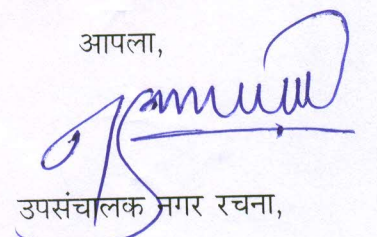 आपला,
उपसंचालक नगर रचना,